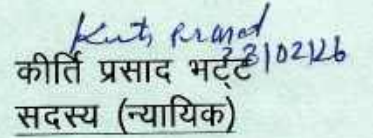 Kirti Prasad
23/02/26
कीर्ति प्रसाद भट्ट
सदस्य (न्यायिक)